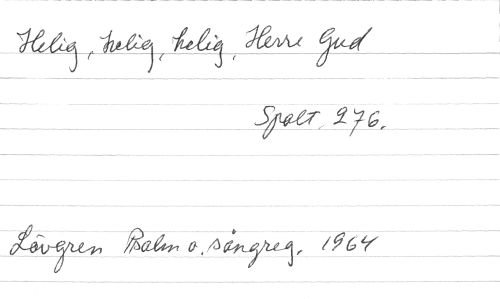 Helig, helig, helig, Herre Gud
Spalt. 276.
Lövgren Psalm o. sångreg. 1964